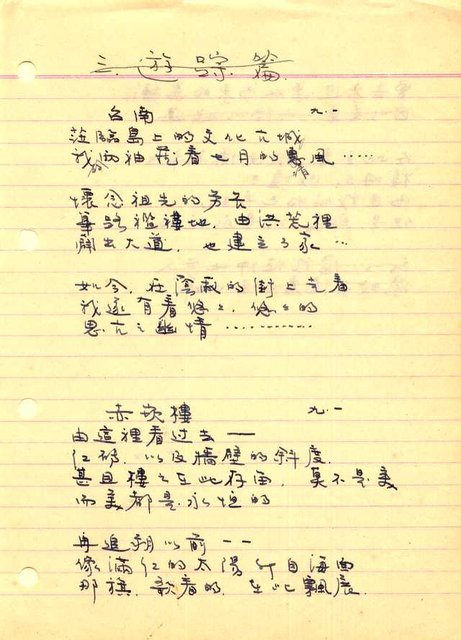 三. 遊踪篇.
台南 九.一
蒞臨島上的文化古城
我兩袖藏着七月的薰風……
懷念祖先的芳衣
篳路襤褸地, 由洪荒裡
開出大道, 也建立了家…
如今, 在蔭蔽的街上走着
我遂有着悠々, 悠々的
思古之幽情…………
赤崁樓 九.一
由這裡看过去——
紅磚, 以及牆壁的斜度,
甚且樓之在此存在, 莫不是美
而美都是永恒的
再追朔以前——
像滿紅的太陽 升自海面
那旗, 歌着的, 在此飄展.